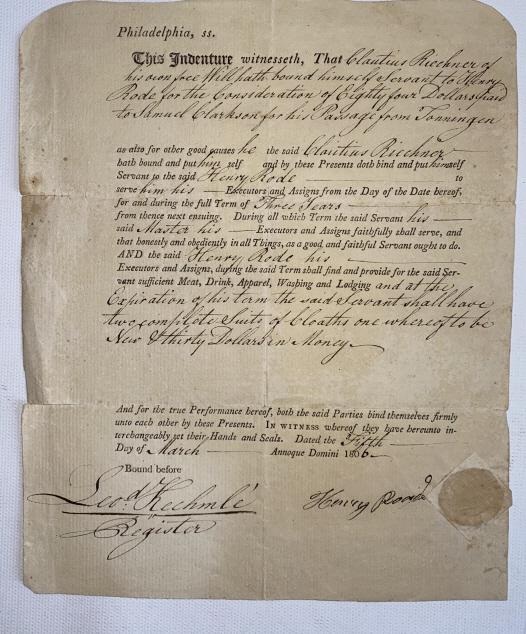 Philadelphia, ss.
This Indenture witnesseth, That Clautius Riechner of
his own free Will hath bound himself Servant to Henry
Rode for the Consideration of Eighty four Dollars paid
to Samuel Clarkson for his Passage from Tonningen
as also for other good causes he the said Clautius Riechner
hath bound and put him self and by these Presents doth bind and put himself
Servant to the said Henry Rode to
serve him his Executors and Assigns from the Day of the Date hereof,
for and during the full Term of Three Years
from thence next ensuing. During all which Term the said Servant his
said Master his Executors and Assigns faithfully shall serve, and
that honestly and obediently in all Things, as a good and faithful Servant ought to do.
AND the said Henry Rode his
Executors and Assigns, during the said Term shall find and provide for the said Ser-
vant sufficient Meat, Drink, Apparel, Washing and Lodging and at the
Expiration of his term the said Servant shall have
two complete Suits of Cloaths one whereof to be
New & thirty Dollars in Money
And for the true Performance hereof, both the said Parties bind themselves firmly
unto each other by these Presents. IN WITNESS whereof they have hereunto in-
terchangeably set their Hands and Seals. Dated the Fifth
Day of March Annoque Domini 1806
Bound before
Leod. Kechmlé
Register
Henry